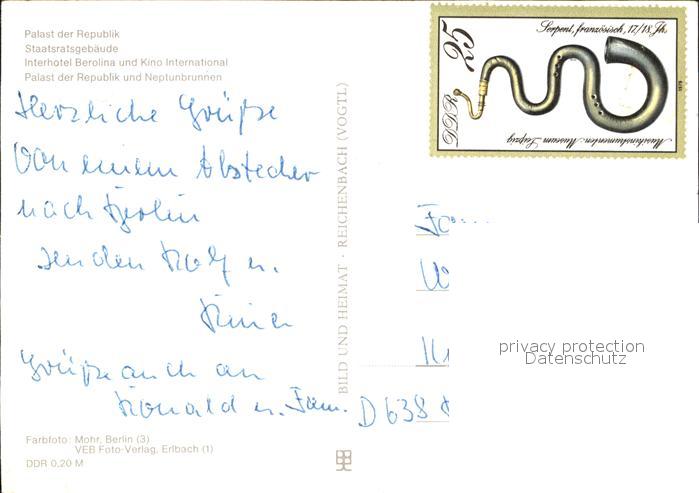 Palast der Republik
Staatsratsgebäude
Interhotel Berolina und Kino International
Palast der Republik und Neptunbrunnen
Herzliche Grüße
von einem Abstecher
nach Berlin
senden Rolf u.
Grüße auch an
Ronald u. Fam.
Farbfoto: Mohr, Berlin (3)
VEB Foto-Verlag, Erlbach (1)
DDR 0,20 M
BILD UND HEIMAT · REICHENBACH (VOGTL)
Serpent, französisch, 17./18. Jh.
25
DDR
1979
Musikinstrumenten-Museum Leipzig
D 638
privacy protection
Datenschutz